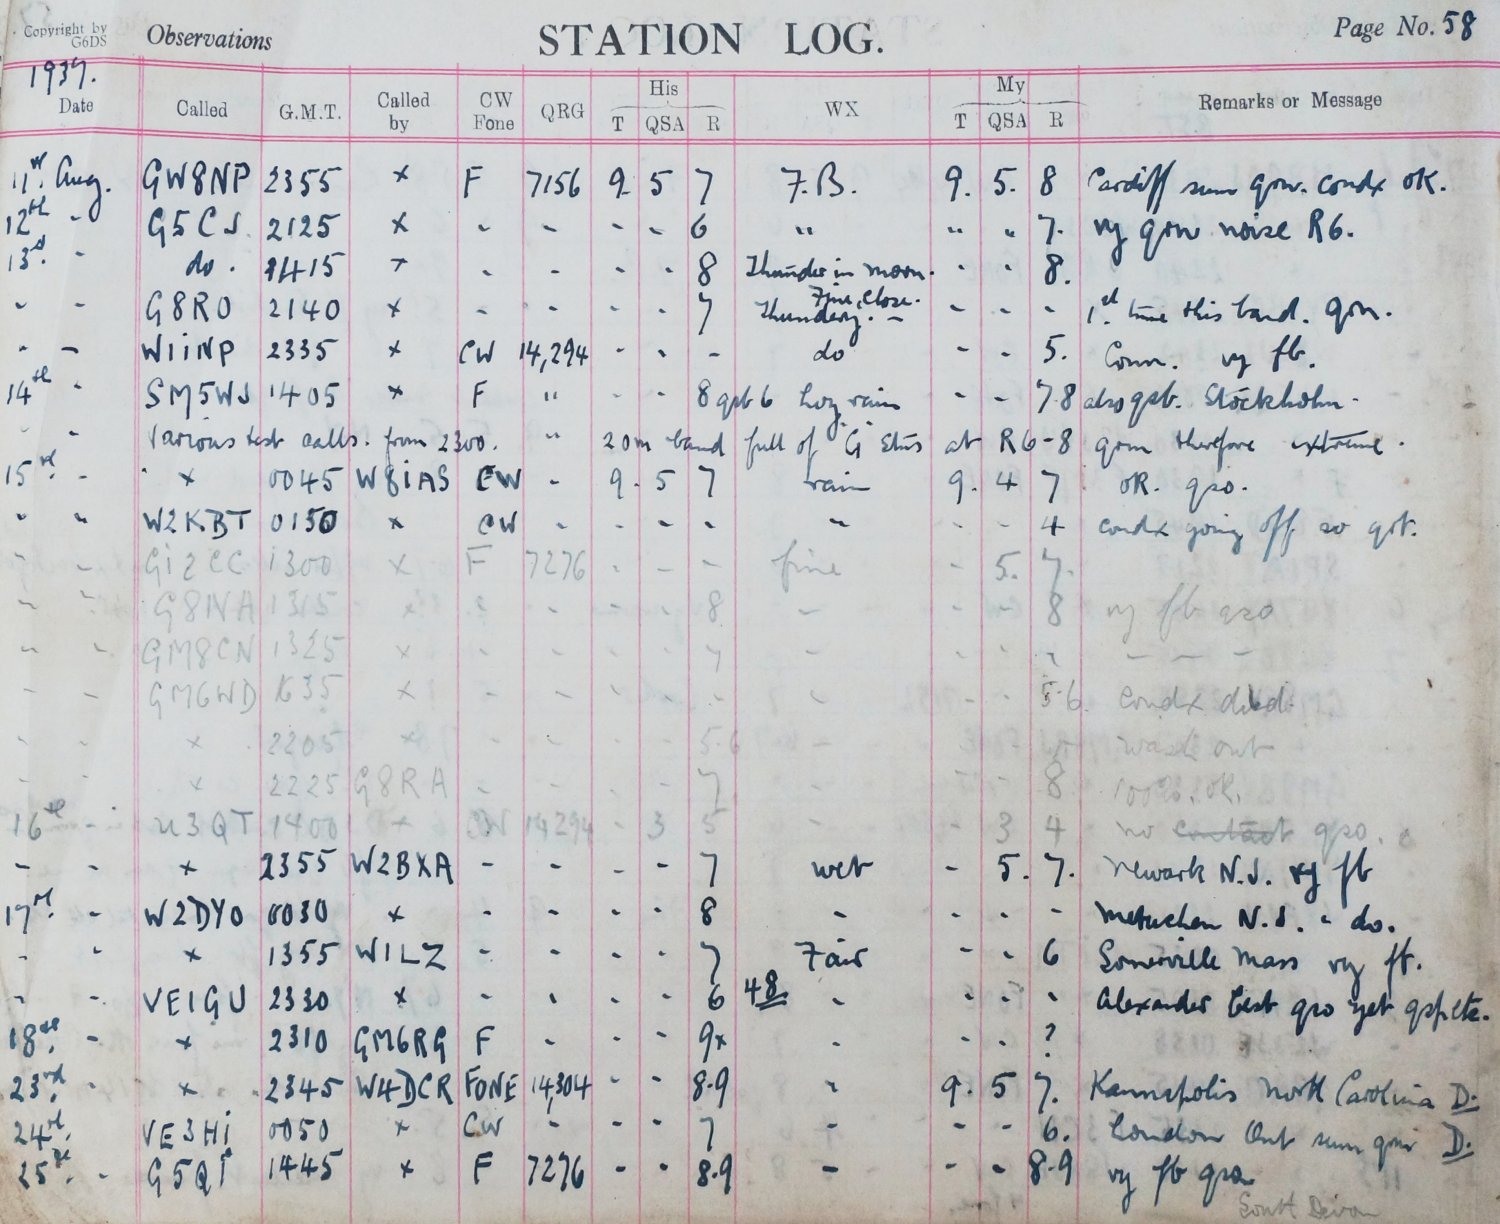 Copyright by G6DS Observations STATION LOG. Page No. 58
1937.
Date Called G.M.T. Called by CW Fone QRG His T QSA R WX My T QSA R Remarks or Message
11th Aug. GW8NP 2355 × F 7156 9 5 7 F.B. 9. 5. 8 Cardiff sum qrm. condx OK.
12th - G5CJ. 2125 × - - - - 6 " " " 7. vy qrm noise R6.
13th. - do. 1415 × - - - - 8 Thunder in - - 8.
- - G8RO 2140 × - - - - 7 Fine, close. thundery. - - - - 1st time this band. qrm.
- - W1iNP 2335 × CW 14,294 - - - do - - 5. Conn. vy fb.
14th - SM5WJ 1405 × F " - - 8 qsb 6 hvy rain - - 7-8 also qsb. Stockholm -
- - Various test calls. from 2300. " 20m band full of 'G' Stns at R6-8 qrm therefore extreme.
15th. - × 0045 W8iAS CW - 9. 5 7 rain 9. 4 7 OK. qso.
" " W2KBT 0150 × CW - - - - " - - 4 condx going off so qrt.
- Gi2CC 1300 × F 7276 - - - fine - 5. 7.
- - G8NA 1315 × - - - 8 - - - 8 vy fb qso
- - GM8CN 1325 × - - - - 7 - - - - - - -
- - GM6WD × - - - - - - - - 5-6. condx
- - × 2205 × 5-6 - wash out
- - × 2225 G8RA - - - - 7 - - 8 100%. OK.
16th - u3QT 1400 × CW 14294 - 3 5 - 3 4 no contact qso.
- - × 2355 W2BXA - - - - 7 wet - 5. 7. Newark N.J. vy fb
17th. - W2DYO 0030 × - - - - 8 - - - - Metuchen N.J. - do.
- - × 1355 W1LZ - - - - 7 Fair - - 6 Somerville Mass vy fb.
- - VE1GU 2330 × - - - - 6 48 - - - - Alexander best qso yet
18th. - × 2310 GM6RG F - - - 9× - - - ?
23rd - × 2345 W4DCR FONE 14,304 - - 8-9 - 9. 5 7. Kannapolis North Carolina D.
24th. VE3Hi 0050 × CW - - - 7 - - - 6. London Ont sum qrm D.
25th. - G5Qi 1445 × F 7276 - - 8-9 - - - 8-9 vy fb qso
South Devon